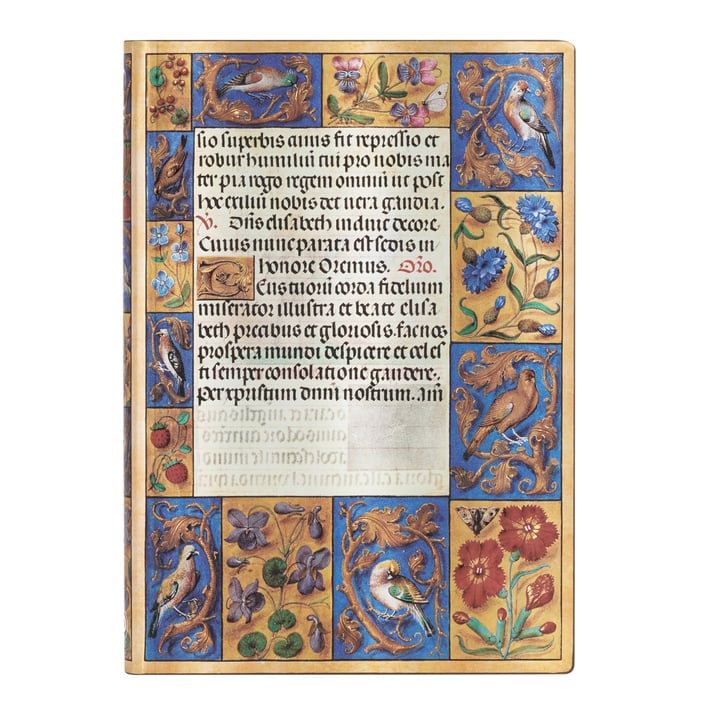 sio superbis cuius fit repressio et
robur humilium cui pro nobis ma
ter pia rogo regem omnium ut post
hoc exilium nobis det vera gaudia.
V. Dn̄s elisabeth induit decore.
Cuius nunc parata est sedis in
honore Oremus. Oro.
Deus tuorum corda fidelium
miserator illustra et beate elisa
beth precibus et gloriosis. fac nos
prospera mundi despicere et celes
ti semper consolatione gaudere.
Per xp̄istum dn̄m nostrum. am̄